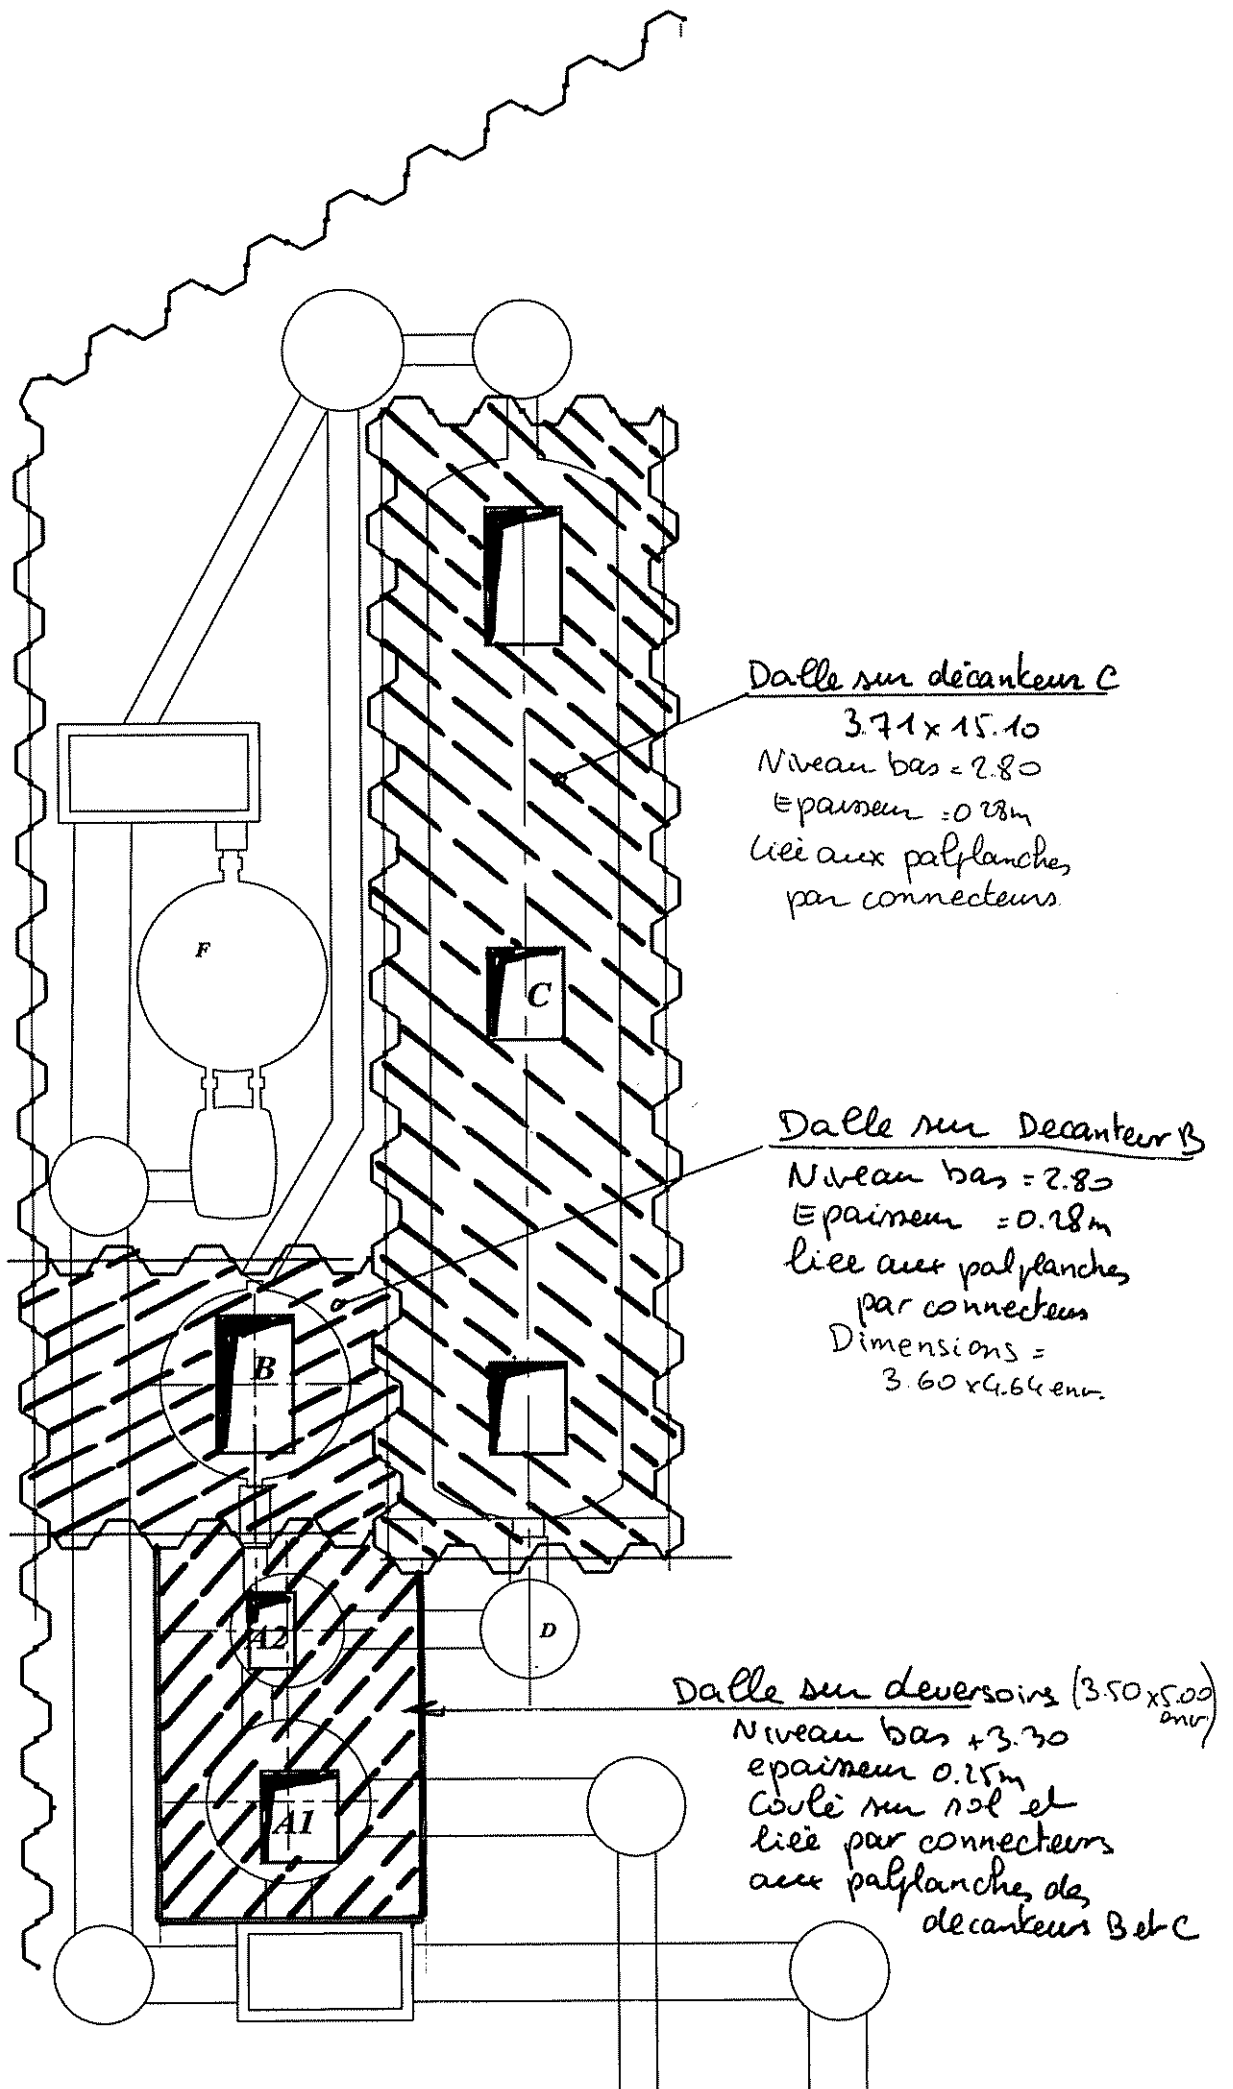 Dalle sur décanteur C
3.71 x 15.10
Niveau bas = 2.80
Epaisseur = 0 28m
liée aux palplanches
par connecteurs
F
C
Dalle sur Decanteur B
Niveau bas = 2.80
Epaisseur = 0.28m
liée aux palplanches
par connecteurs
Dimensions =
3.60 x 4.64 env.
B
A2
D
Dalle sur deversoirs (3.50 x 5.00 env)
Niveau bas +3.30
epaisseur 0.25m
Coulé sur sol et
liée par connecteurs
aux palplanches des
decanteurs B et C
A1